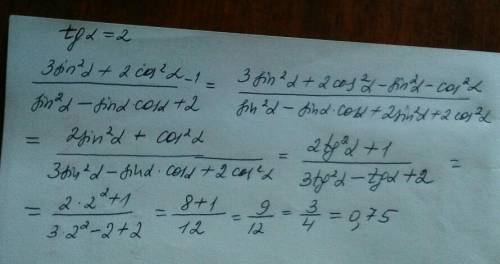 tgα = 2
(3sin²α + 2cos²α - 1)/(sin²α - sinα cosα + 2) = (3sin²α + 2cos²α - sin²α - cos²α)/(sin²α - sinα·cosα + 2sin²α + 2cos²α)
= (2sin²α + cos²α)/(3sin²α - sinα·cosα + 2cos²α) = (2tg²α + 1)/(3tg²α - tgα + 2) =
= (2·2² + 1)/(3·2² - 2 + 2) = (8+1)/12 = 9/12 = 3/4 = 0,75